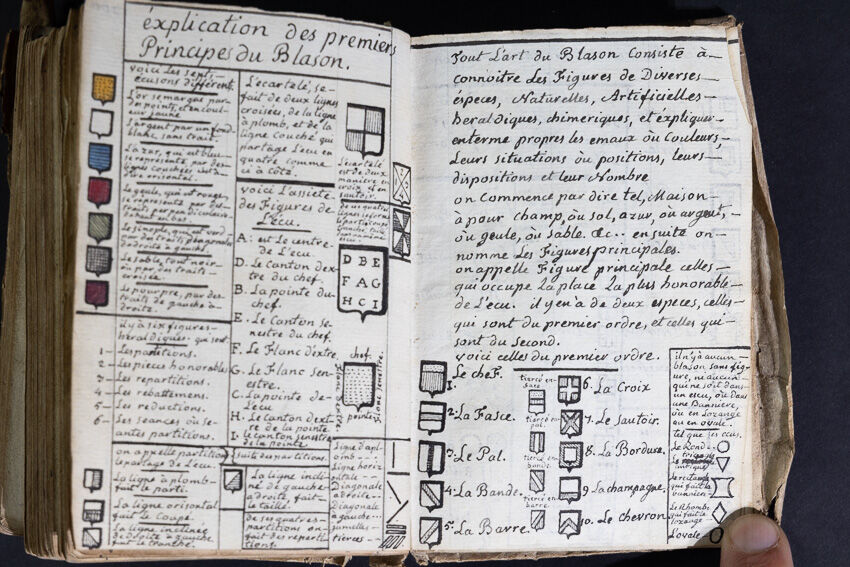 éxplication des premiers
Principes du Blason.
voici Les sept
écusons différent.
L'or se marque par
des points, et en coul
eur jaune
L'argent par un fond
blanc, sans trait.
L'azur, qui est bleue
se représente par des
Le geule, qui est rouge
se représente par des
Le sinople, qui est verd
par des traits diagonales
de droite à gauche.
Le sable, tout noir
ou par des traits
croisée.
Le pourpre, par des
traits de gauche à
droite.
il y a six figures
heraldiques qui sont
1- Les partitions.
2- Les pieces honorables
3- Les repartitions.
4- Les rebattemens.
5- Les réductions.
6- Les seances ou se-
antes partitions.
on appelle partition
le partage de L'ecu.
La ligne à plomb-
fait le parti.
La ligne orisontal
fait Le coupé.
La ligne inclinée
de droite à gauche
fait le tranché.
L'écartelé, se-
fait de deux lignes
croisées, de la ligne
à plomb, et de la
ligne Couché qui
partage L'ecu en
quatre comme
ci à côté.
voici L'assiete
des Figures de
L'écu.
A: est Le centre
de L'ecu.
D. Le canton dex
tre du chef.
B. La pointe du
chef.
E. Le Canton se-
nestre du chef.
F. Le Flanc d'extre
G. Le Flanc Sen-
estre.
C. La pointe de-
L'écu
H. Le canton dext
re de la pointe
I. Le canton senestre
pointe
suite du partitions.
La ligne incli
né de gauche-
à droite, fait-
le taillé.
de ses quatres-
partitions on
fait des reparti
tions.
L'écartelé
est de deux
maniere en
croix et en
sautoir.
D B E
F A G
H C I
chef.
pointe
Ligne d'apl
omb-
Ligne horiz
ontale-
Diagonale
à droite-
Diagonale
à gauche-
jumelles-
tierces-
Tout L'art du Blason Consiste à-
connoitre des Figures de Diverses-
éspeces, Naturelles, Artificielles-
heraldiques, chimeriques, et éxpliquer-
en terme propres les emaux où Couleurs,-
Leurs situations où positions, leurs-
dispositions et leur Nombre
on Commence par dire tel, Maison-
à pour champ, où sol, azur, où argent,-
où geule, où sable. &c.. ensuite on-
nomme Les Figures principales.
on appelle Figure principale celles-
qui occupe La place La plus honorable-
de L'ecu. il y en à de deux especes, celles-
qui sont du premier ordre, et celles qui-
sont du Second.
voici celles du premier ordre.
1. Le cheF.
2. La Fasce.
3. Le Pal.
4. La Bande.
5. La Barre.
tiercé en
fasce.
tiercé en
pal.
tiercé en
bande.
tiercé en
barre
6. La Croix
7. Le Sautoir.
8. La Bordure.
9. La champagne.
10. Le chevron.
il n'y à aucun-
blason sans fig-
ure, ne aucun-
qui ne soit dans
un escu, où dans
une Banniere,
où en Lozange
ou en ovale.
tel que ses ecus.
Le Rond
Le triangle
antique
Le rectangle
qui fait la
banniere
Le Rhombe
qui fait la
lozange
L'ovale